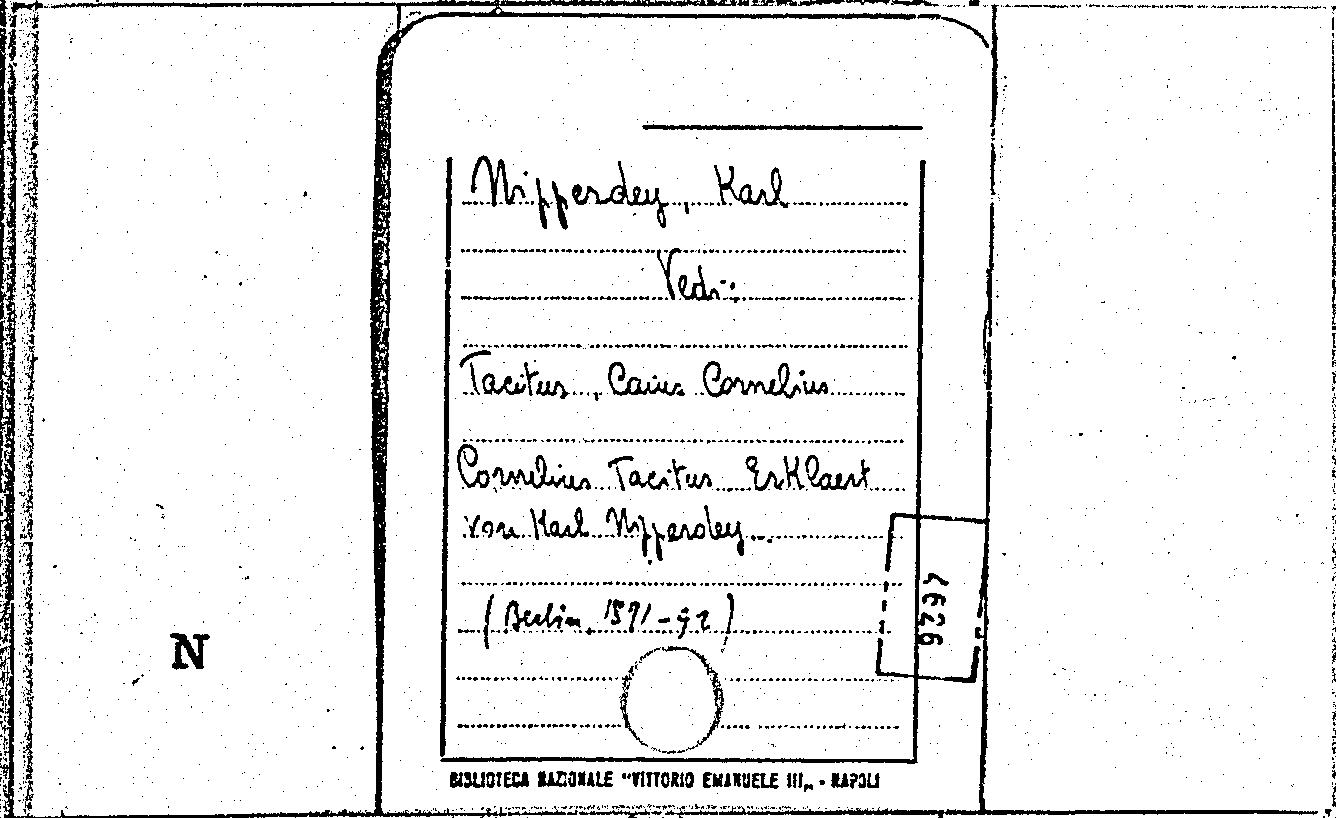 Nipperdey, Karl
Vedi:
Tacitus, Caius Cornelius
Cornelius Tacitus Erklaert
von Karl Nipperdey...
(Berlin, 1871-92)
4626
N
BIBLIOTECA NAZIONALE "VITTORIO EMANUELE III„ - NAPOLI